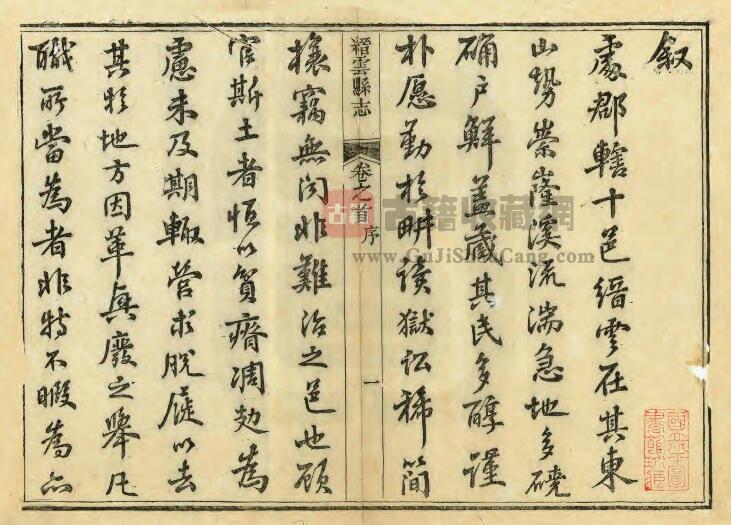 叙
處郡轄十邑縉雲在其東
山勢崇嶐溪流湍急地多磽
确户鮮盖藏其民多醇謹
朴愿勤於耕讀獄訟稀簡
縉雲縣志
卷之首
序
一
攘竊無闻非難治之邑也顾
官斯土者恒以貧瘠凋劾為
慮未及期輙营求脫屣以去
其於地方因革興廢之舉凡
職所當為者非特不暇為亦
古籍
古籍收藏網
www.GuJiShouCang.com